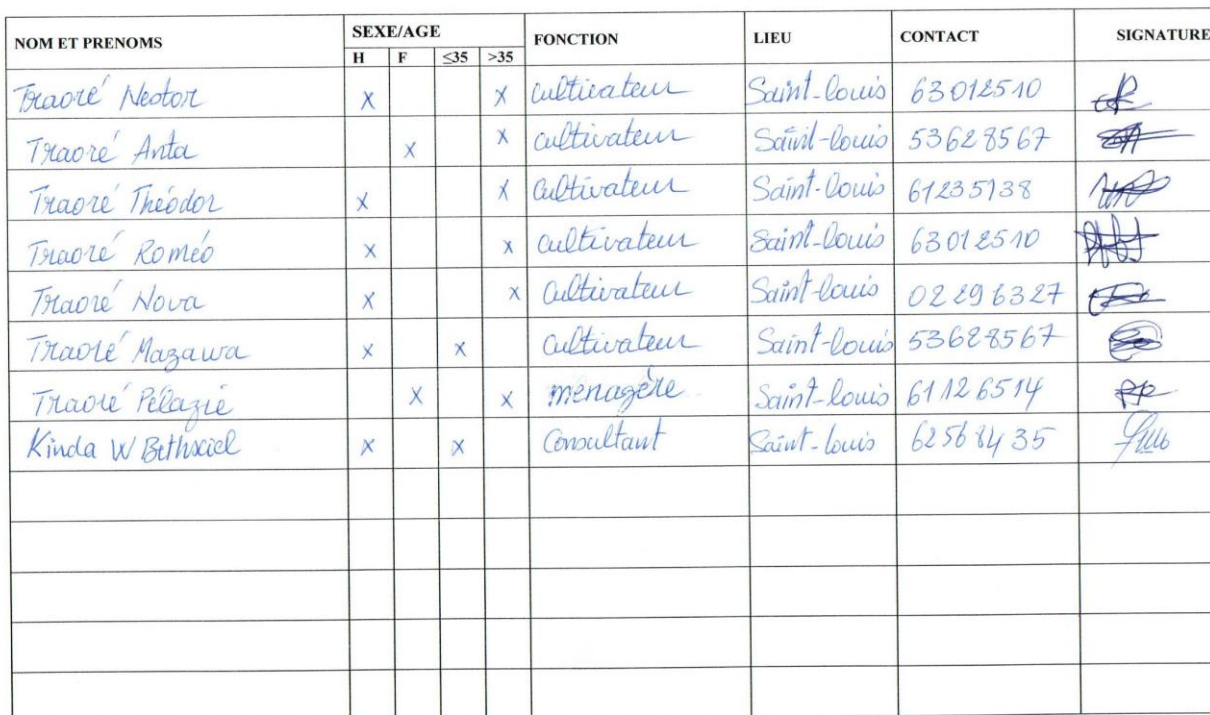 NOM ET PRENOMS SEXE/AGE FONCTION LIEU CONTACT SIGNATURE
H F ≤35 >35
Traoré Nestor X X cultivateur Saint-Louis 63012510
Traoré Anta X X cultivateur Saint-Louis 53628567
Traoré Théodor X X cultivateur Saint-Louis 61235138
Traoré Roméo X X cultivateur Saint-Louis 63012510
Traoré Nova X X cultivateur Saint-Louis 02296327
Traoré Mazawa X X cultivateur Saint-Louis 53628567
Traoré Pélazie X X ménagère Saint-Louis 61126514
Kinda W X X Consultant Saint-Louis 62568435